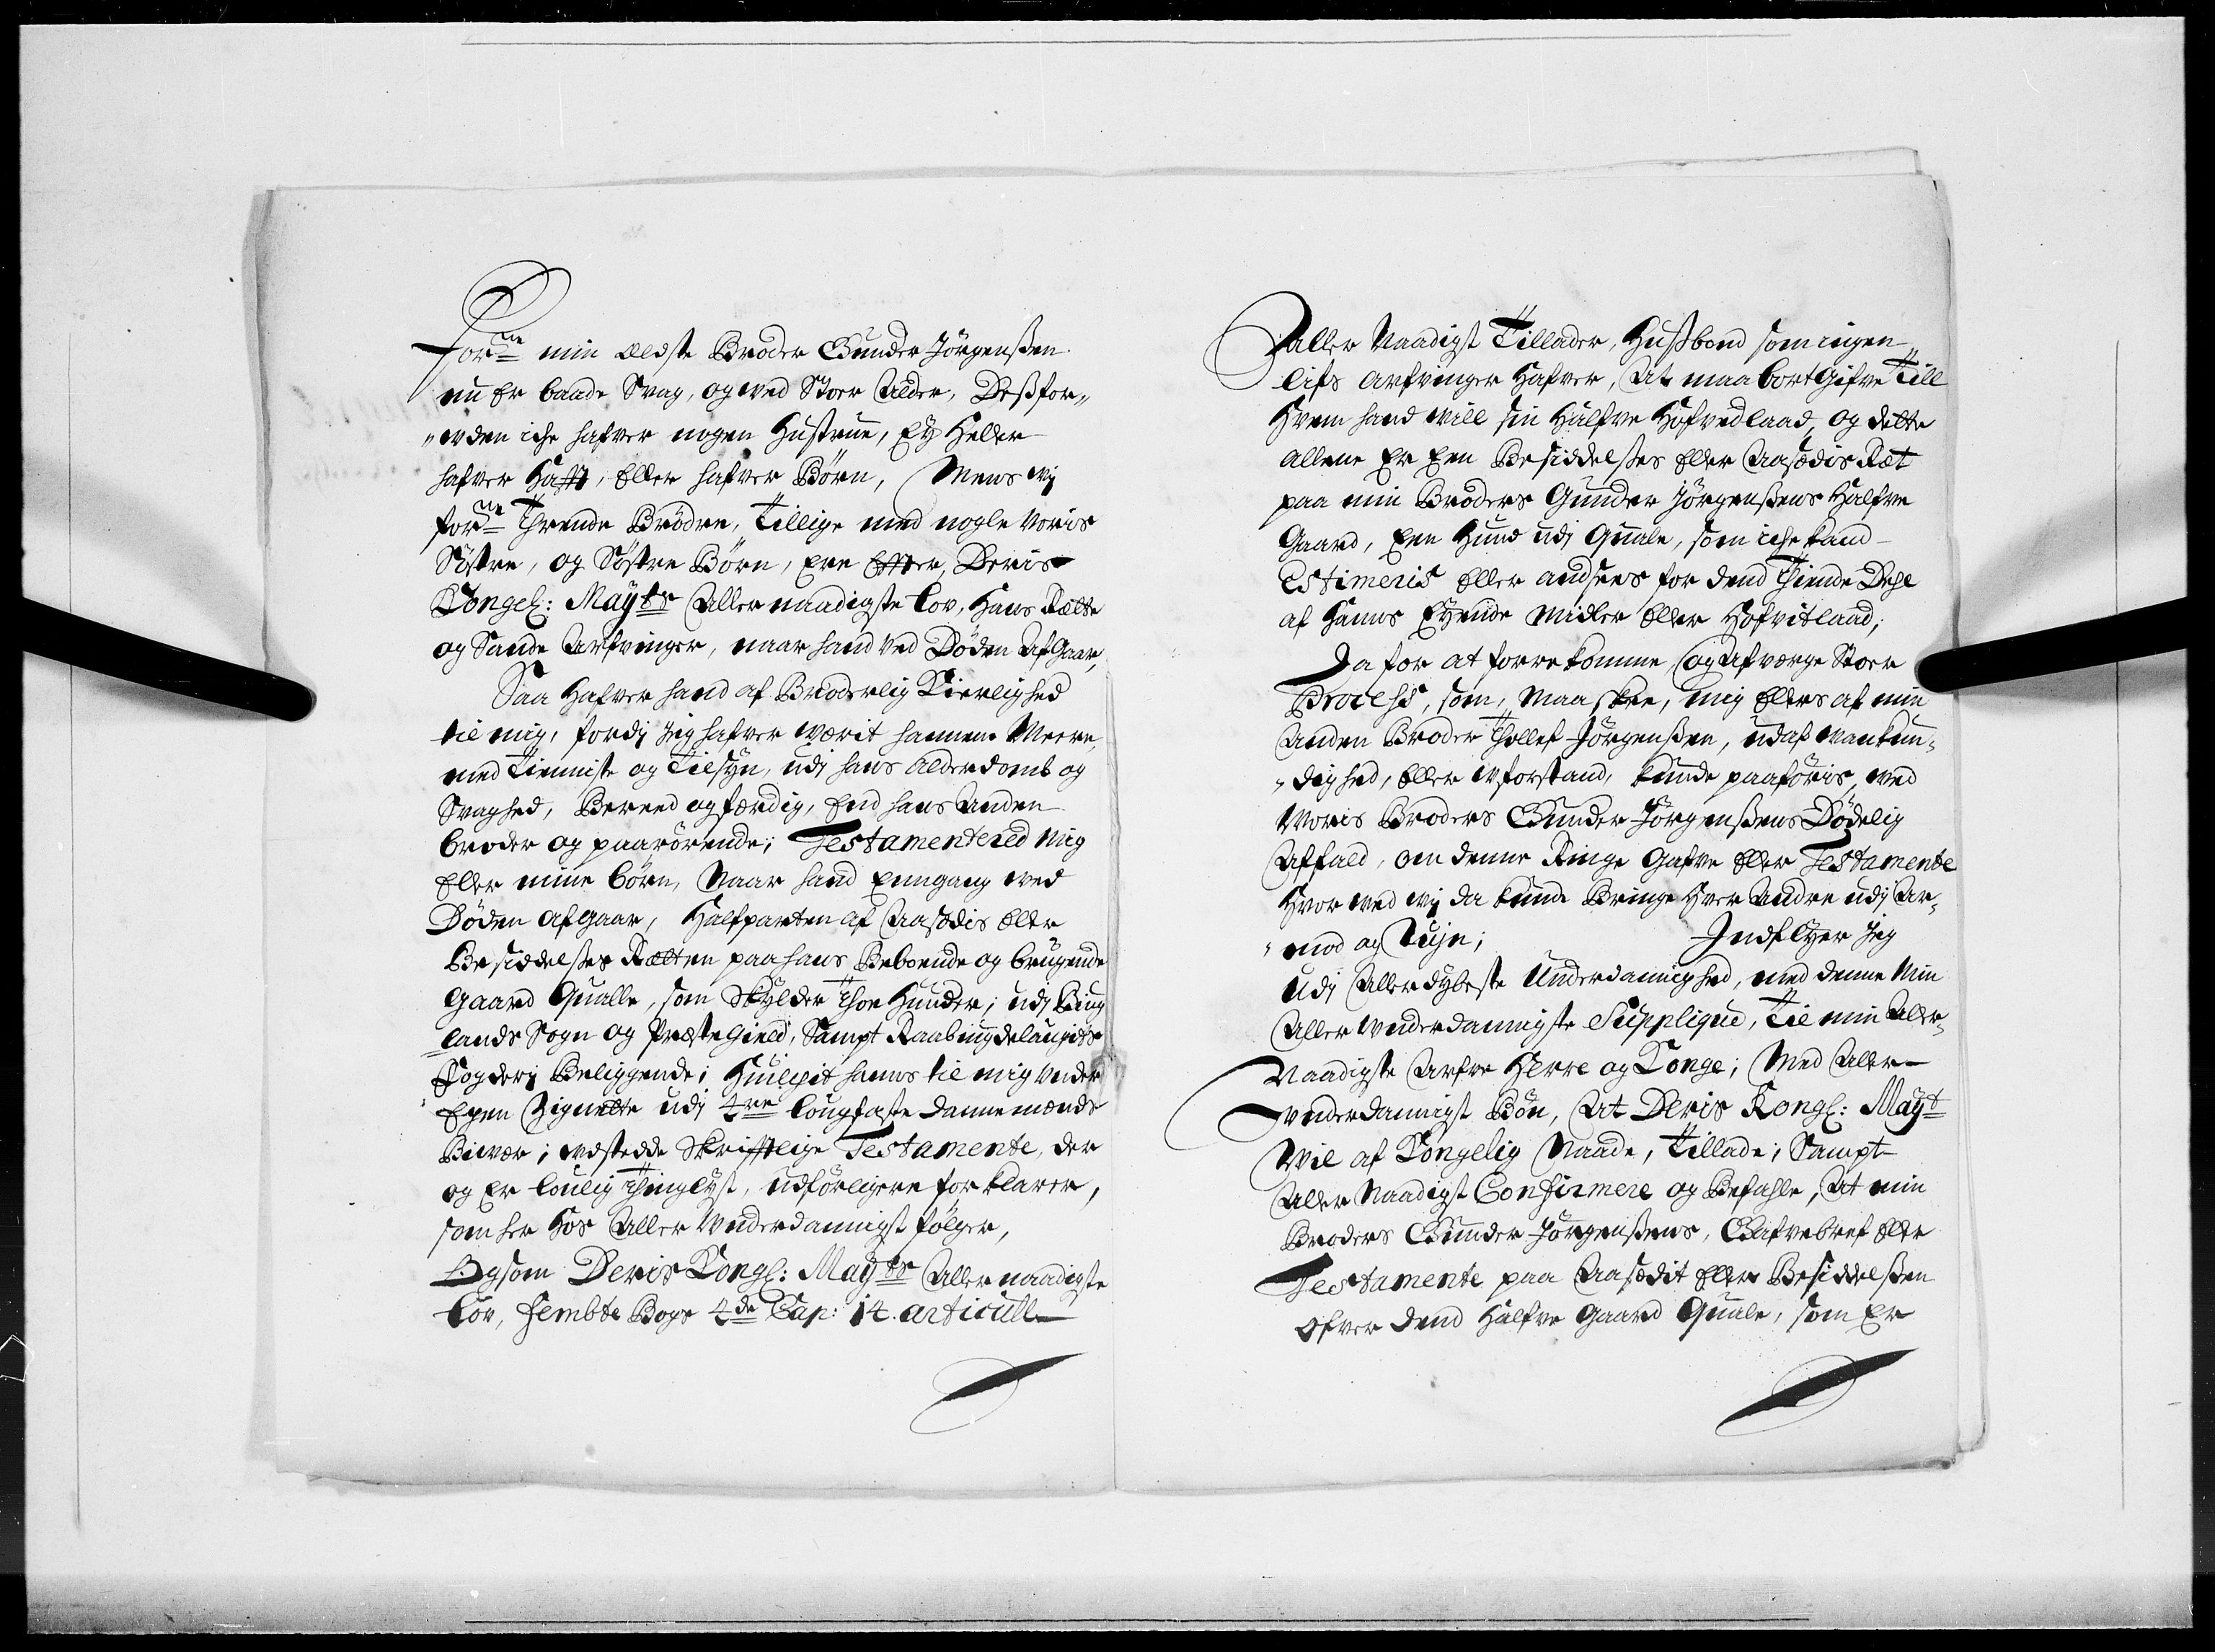 Forne min Eldste Broder Gunder Jörgenßen
nu Er baade Svag, og ved Stoer Alder, Desfor-
uden iche hafver nogen Hustrue, Ey heller
hafver Hafft, Eller hafver Börn, Mens vij
forne Thrende Brödre, Tillige med nogle voris
Söstre, og Söstre Börn, Ere Effter, Deris
Kongel: Mayts Aller naadigste Lov, hans Rette
og Sande Arfvinger, naar hand ved Döden Afgaar,
Saa Hafver hand af Broderlig Kierlighed
til mig, fordj Jeg hafver værit hannem Meere,
med Tienniste og Tilsyn, udj hans Alderdomb og
Svaghed, Bereed og færdig, End hans Anden
broder og paarörende; Testamentered Mig
Eller mine börn, Naar hand Enngang ved
Döden afgaar, Halfparten af Aasædis Eller
Besiddelßes Retten paa hans Beboende og brugende
Gaard Qualle, som Skylder Thoe Hunder, udj
lands Sogn og Præstegield, Sampt Raabiugdelaugits
Fogderj Beliggende; Huilchit hanns til mig under
Egen Zignette udj 4re Lougfaste Dannemænds
Biiværr; udstedde Skrifftlige Testamente, der
og Er Loulig Thinglyst, udförligere forklarer,
som her Hos Aller Underdannigst fölger,
Og som Deris Kongl: Mayts Aller naadigste
Lov, fembte Bogs 4de Cap: 14. articull
Aller Naadigst Tillader, Hußbond som ingen
lifs Arfvinger Hafver, At maa bortgifve Till
Hvem hand vill sin Halfve Hofvedlaad, og dette
allene Er Een Besiddelßes Eller Aasædis Ræt
paa min Broders Gunder Jörgenßens Halfve
Gaard, Een Hund udj Quale, som iche kand
Estimeris Eller andsees for dend Thiende Deel
af Hanns Eyende Midler Eller Hofvitlaad;
Da for at forrekomme og Afværge Stoer
Process, som, Maa skee, mig Ellers af min
Anden Broder Thollef Jörgenßen, udaf vankun-
dighed, Eller Uforstand, kunde paaföris, ved
Voris Broders Gunder Jörgenßens Dödelig
Affald, om denne Ringe Gafve Eller Testamente
Hvor ved vij da kunde Bringe Hver Andre udj Ar-
mod og Ruin; Indflyer Jeg
Udj Allerdybeste Underdannighed, med denne Min
Aller underdannigste Supplique, Til min Aller-
Naadigste Arfve Herre og Konge; Med Aller-
underdannigst Bön, At Deris Kongl: Mayt
Vil af Kongelig Naade, Tillade; Sampt
Aller Naadigst Confirmere og Befahle, At min
Broders Gunder Jörgenßens, Gafvebref Eller
Testamente paa Aasædit Eller Besiddelßen
Ofver Dend Halfve Gaard Quale, som Er